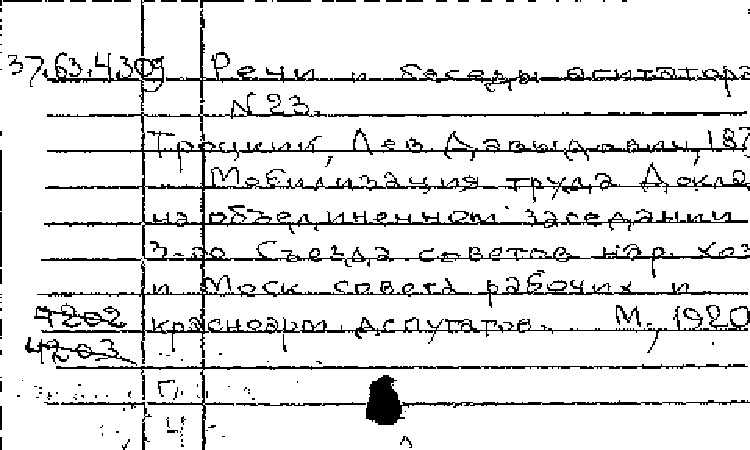 37.63.4309 Речи и беседы агитатора
N 23.
Троцкий, Лев Давыдович, 187
Мобилизация труда Докла
на объединенном заседании
3-го Съезда советов нар. хоз
и Моск. совета рабочих и
7202 красноарм. депутатов. М., 1920
4203
П
4